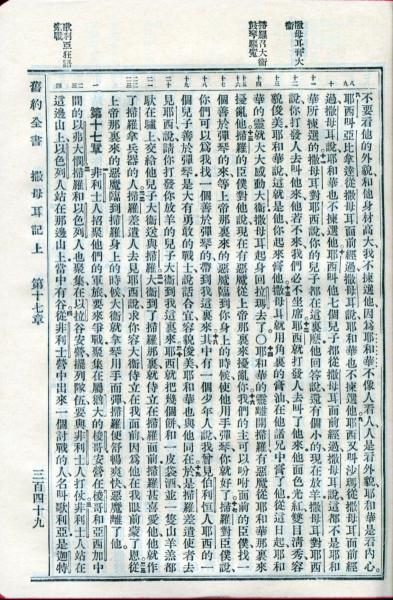 撒母耳膏大衛
掃羅召大衛鼓琴驅鬼
歌利亞狂語罵戰
不要看他的外貌和他身材高大我不揀選他因爲耶和華不像人看人人是看外貌耶和華是看內心
耶西叫亞比拿達從撒母耳面前經過撒母耳說耶和華也不揀選他耶西又叫沙瑪從撒母耳面前經
過撒母耳說耶和華也不揀選他耶西叫他七個兒子都從撒母耳面前經過撒母耳說這都不是耶和
華所揀選的撒母耳對耶西說你的兒子都在這裏麽他回答說還有個小的現在放羊撒母耳對耶西
說你打發人去叫他來他若不來我們必不坐席耶西就打發人去叫了他來他面色光紅雙目清秀容
貌俊美耶和華說這就是他你起來膏他撒母耳就用角裏的膏油在他諸兄中膏了他從這日起耶和
華的靈就大大感動大衛撒母耳起身回拉瑪去了〇耶和華的靈離開掃羅有惡魔從耶和華那裏來
擾亂他掃羅的臣僕對他說現在有惡魔從上帝那裏來擾亂你我們的主可以吩咐面前的臣僕找一
個善於彈琴的來等上帝那裏來的惡魔臨到你身上的時候使他用手彈琴你就好了掃羅對臣僕說
你們可以爲我找一個善於彈琴的帶到我這裏來其中有一個少年人說我曾見伯利恒人耶西的一
個兒子善於彈琴是大有勇敢的戰士說話合宜容貌俊美耶和華也與他同在於是掃羅差遣使者去
見耶西說請你打發你放羊的兒子大衛到我這裏來耶西就把幾個餅和一皮袋酒並一隻山羊羔都
馱在驢上交給他兒子大衛送與掃羅大衛到了掃羅那裏就侍立在掃羅面前掃羅甚喜愛他他就作
了掃羅拿兵器的人掃羅差遣人去見耶西說求你容大衛侍立在我面前因爲他在我眼前蒙了恩從
上帝那裏來的惡魔臨到掃羅身上的時候大衛就拿琴用手而彈掃羅便舒暢爽快惡魔離了他
第十七章 非利士人招聚他們的軍旅要來爭戰聚集在屬猶大的梭哥安營在梭哥和亞西加中
間的以弗大憫掃羅和以色列人也聚集在以拉谷安營擺列隊伍要與非利士人打仗非利士人站在
這邊山上以色列人站在那邊山上當中有谷從非利士營中出來一個討戰的人名叫歌利亞是迦特
舊約全書 撒母耳記上 第十七章 三百四十九